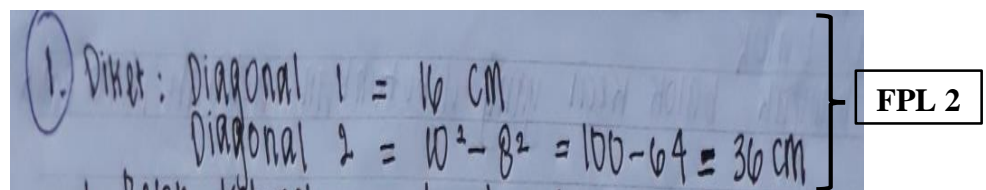 1. Diket : Diagonal 1 = 16 cm
Diagonal 2 = 10² - 8² = 100 - 64 = 36 cm
FPL 2